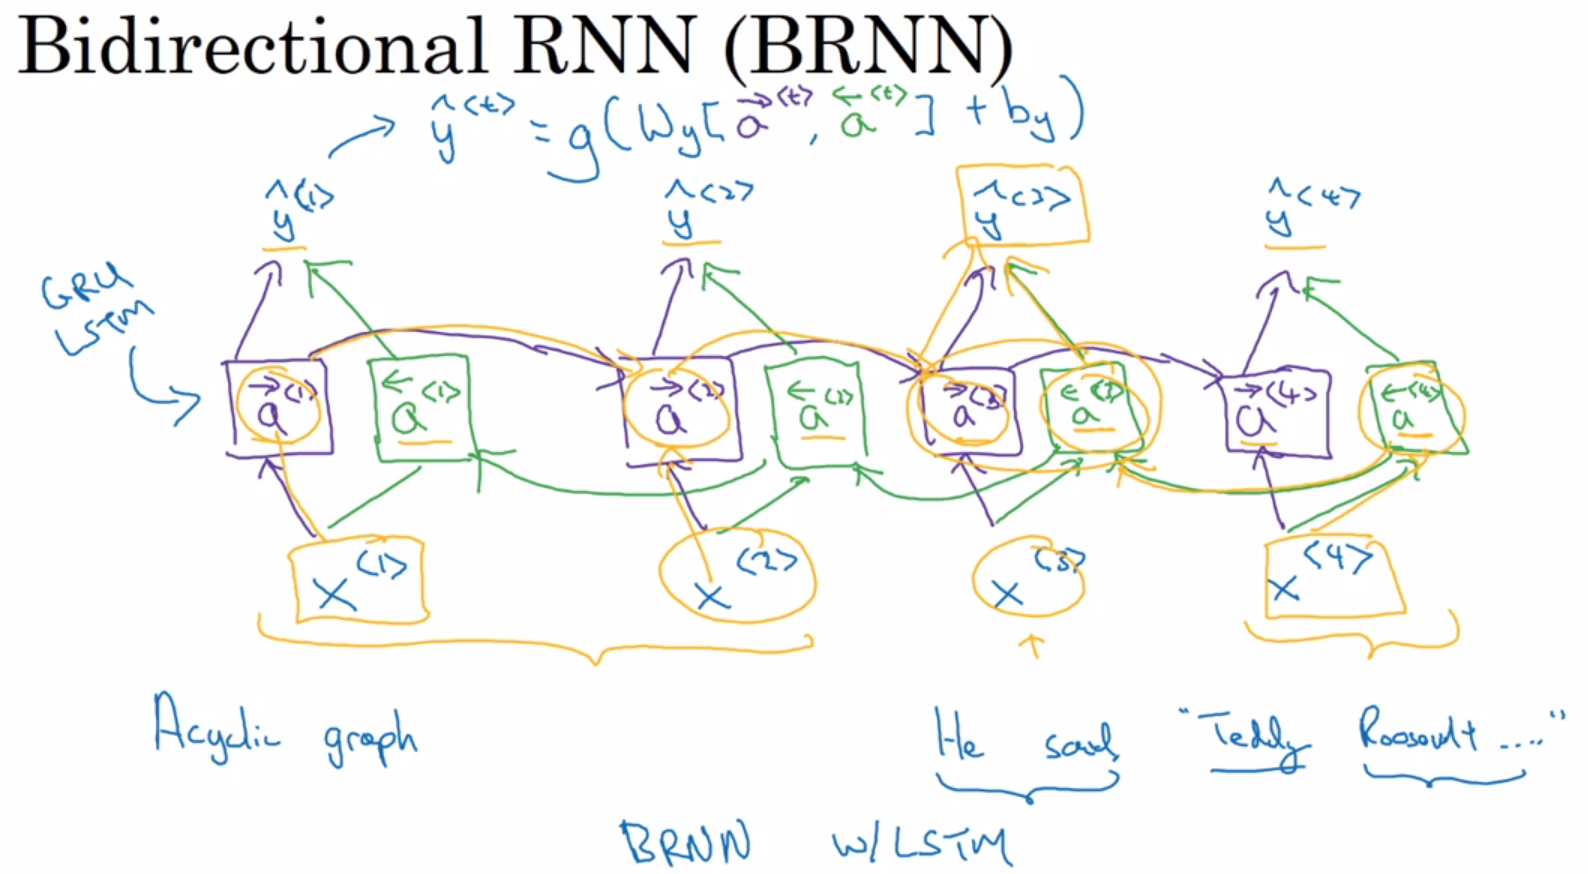 Bidirectional RNN (BRNN)
ŷ<t> = g(Wy[a→<t>, a←<t>] + by)
ŷ<1> ŷ<2> ŷ<3> ŷ<4>
GRU
LSTM
a→<1> a←<1> a→<2> a←<2> a→<3> a←<3> a→<4> a←<4>
x<1> x<2> x<3> x<4>
Acyclic graph
He said, "Teddy Roosevelt ...."
BRNN w/ LSTM